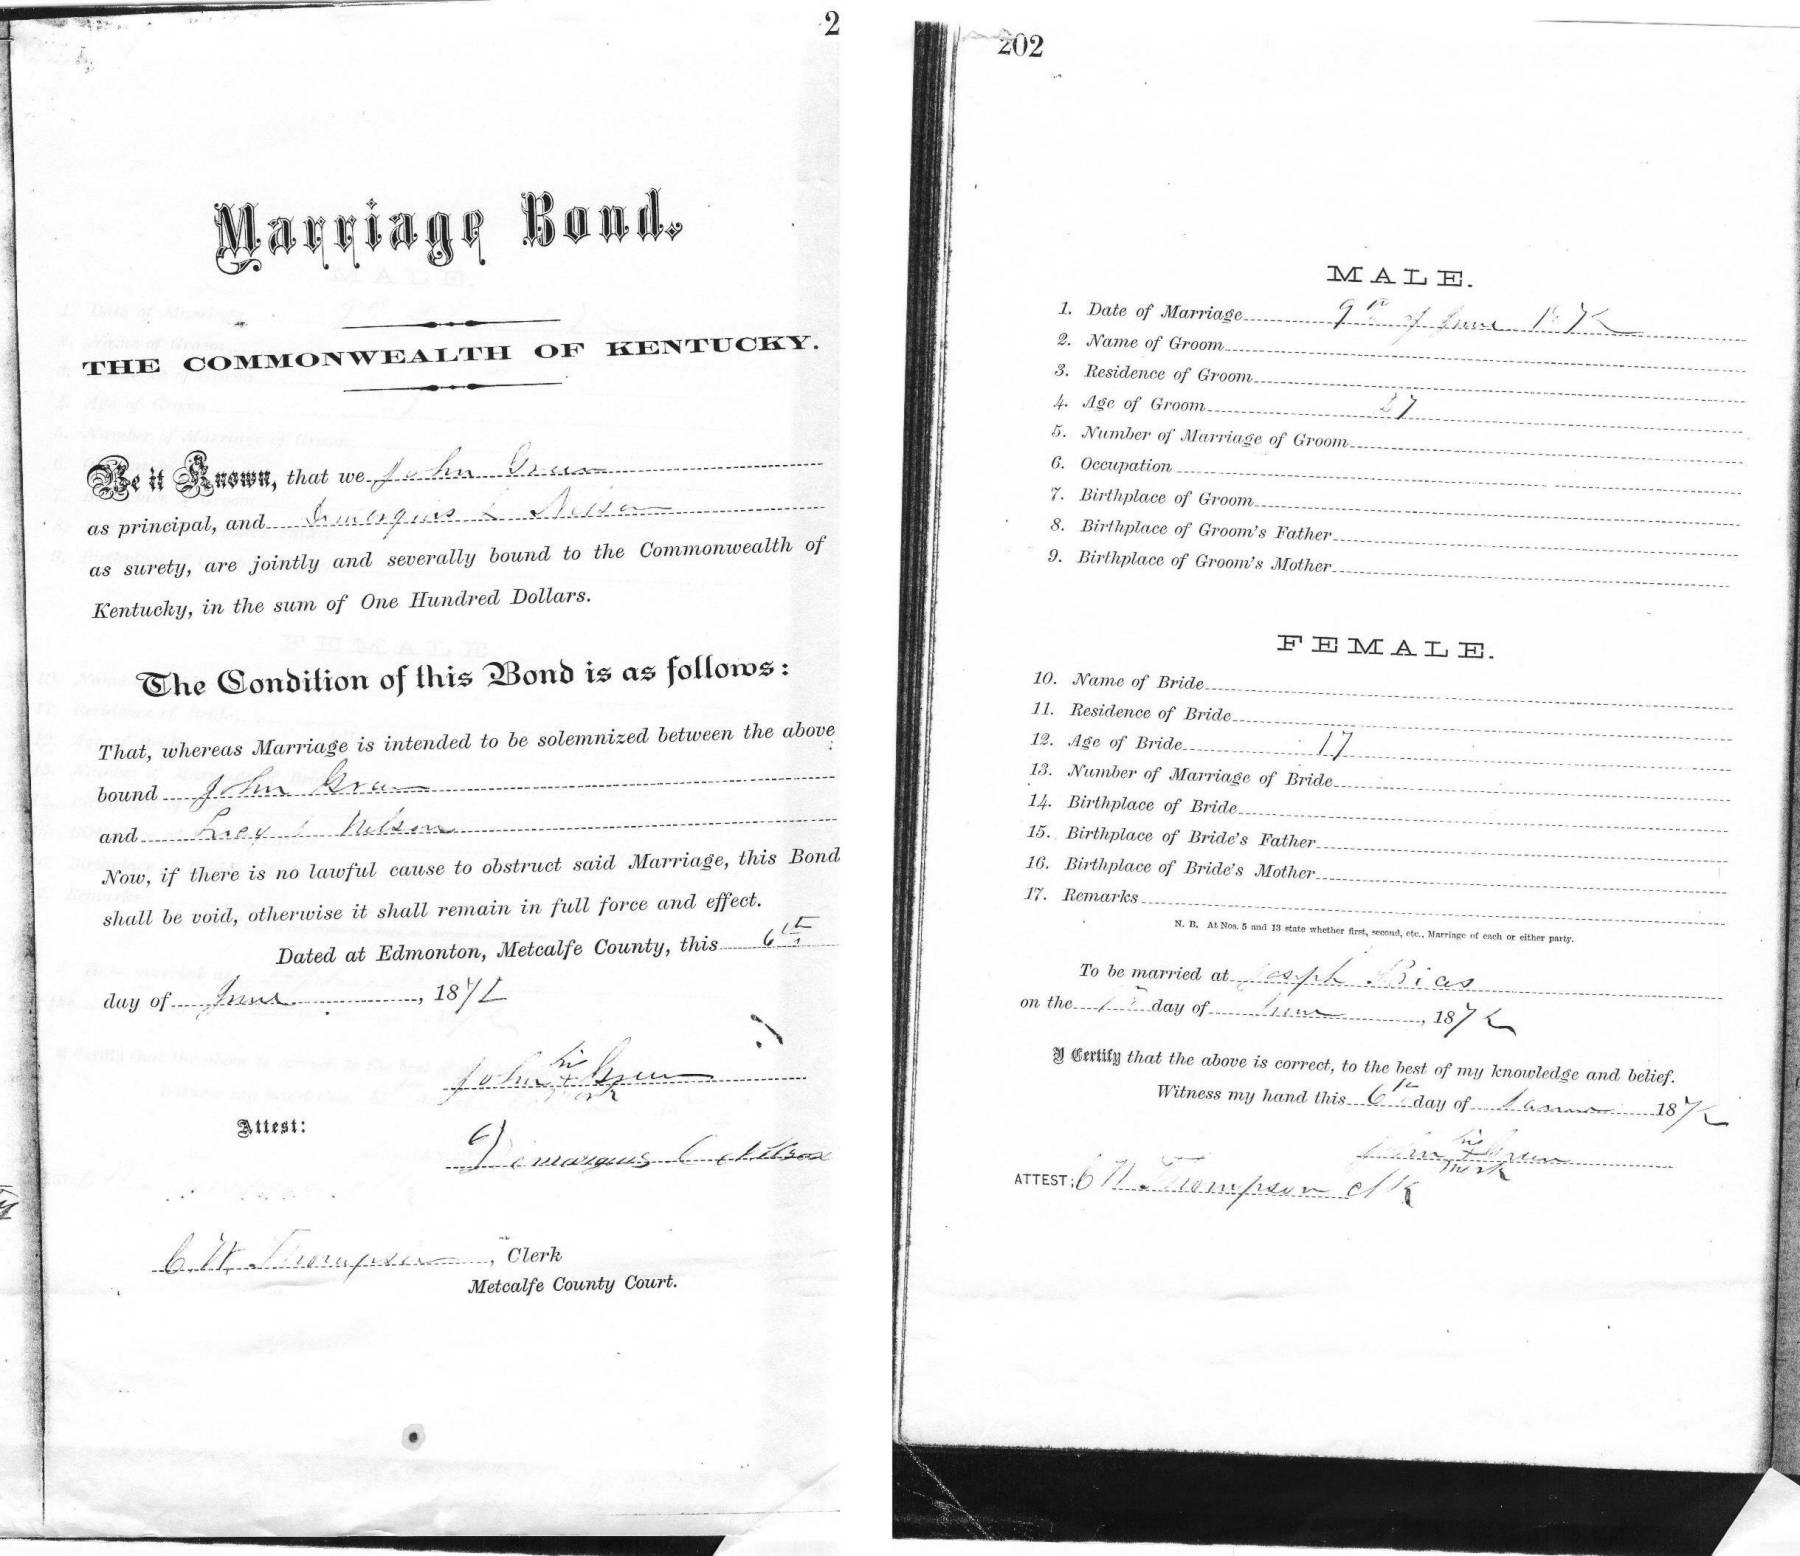 2
Marriage Bond.
THE COMMONWEALTH OF KENTUCKY.
Be it Known, that we John Green
as principal, and Nelson
as surety, are jointly and severally bound to the Commonwealth of
Kentucky, in the sum of One Hundred Dollars.
The Condition of this Bond is as follows:
That, whereas Marriage is intended to be solemnized between the above
bound John Green
and Lucy Nelson
Now, if there is no lawful cause to obstruct said Marriage, this Bond
shall be void, otherwise it shall remain in full force and effect.
Dated at Edmonton, Metcalfe County, this 6th
day of June, 187
John his x mark Green
Attest:
C. W. Thompson, Clerk
Metcalfe County Court.
202
MALE.
1. Date of Marriage 9th of June 187
2. Name of Groom
3. Residence of Groom
4. Age of Groom 27
5. Number of Marriage of Groom
6. Occupation
7. Birthplace of Groom
8. Birthplace of Groom's Father
9. Birthplace of Groom's Mother
FEMALE.
10. Name of Bride
11. Residence of Bride
12. Age of Bride 17
13. Number of Marriage of Bride
14. Birthplace of Bride
15. Birthplace of Bride's Father
16. Birthplace of Bride's Mother
17. Remarks
N. B. At Nos. 5 and 13 state whether first, second, etc., Marriage of each or either party.
To be married at Joseph Bias
on the day of June, 187
I Certify that the above is correct, to the best of my knowledge and belief.
Witness my hand this 6th day of 187
John his x mark Green
ATTEST: C W Thompson clk